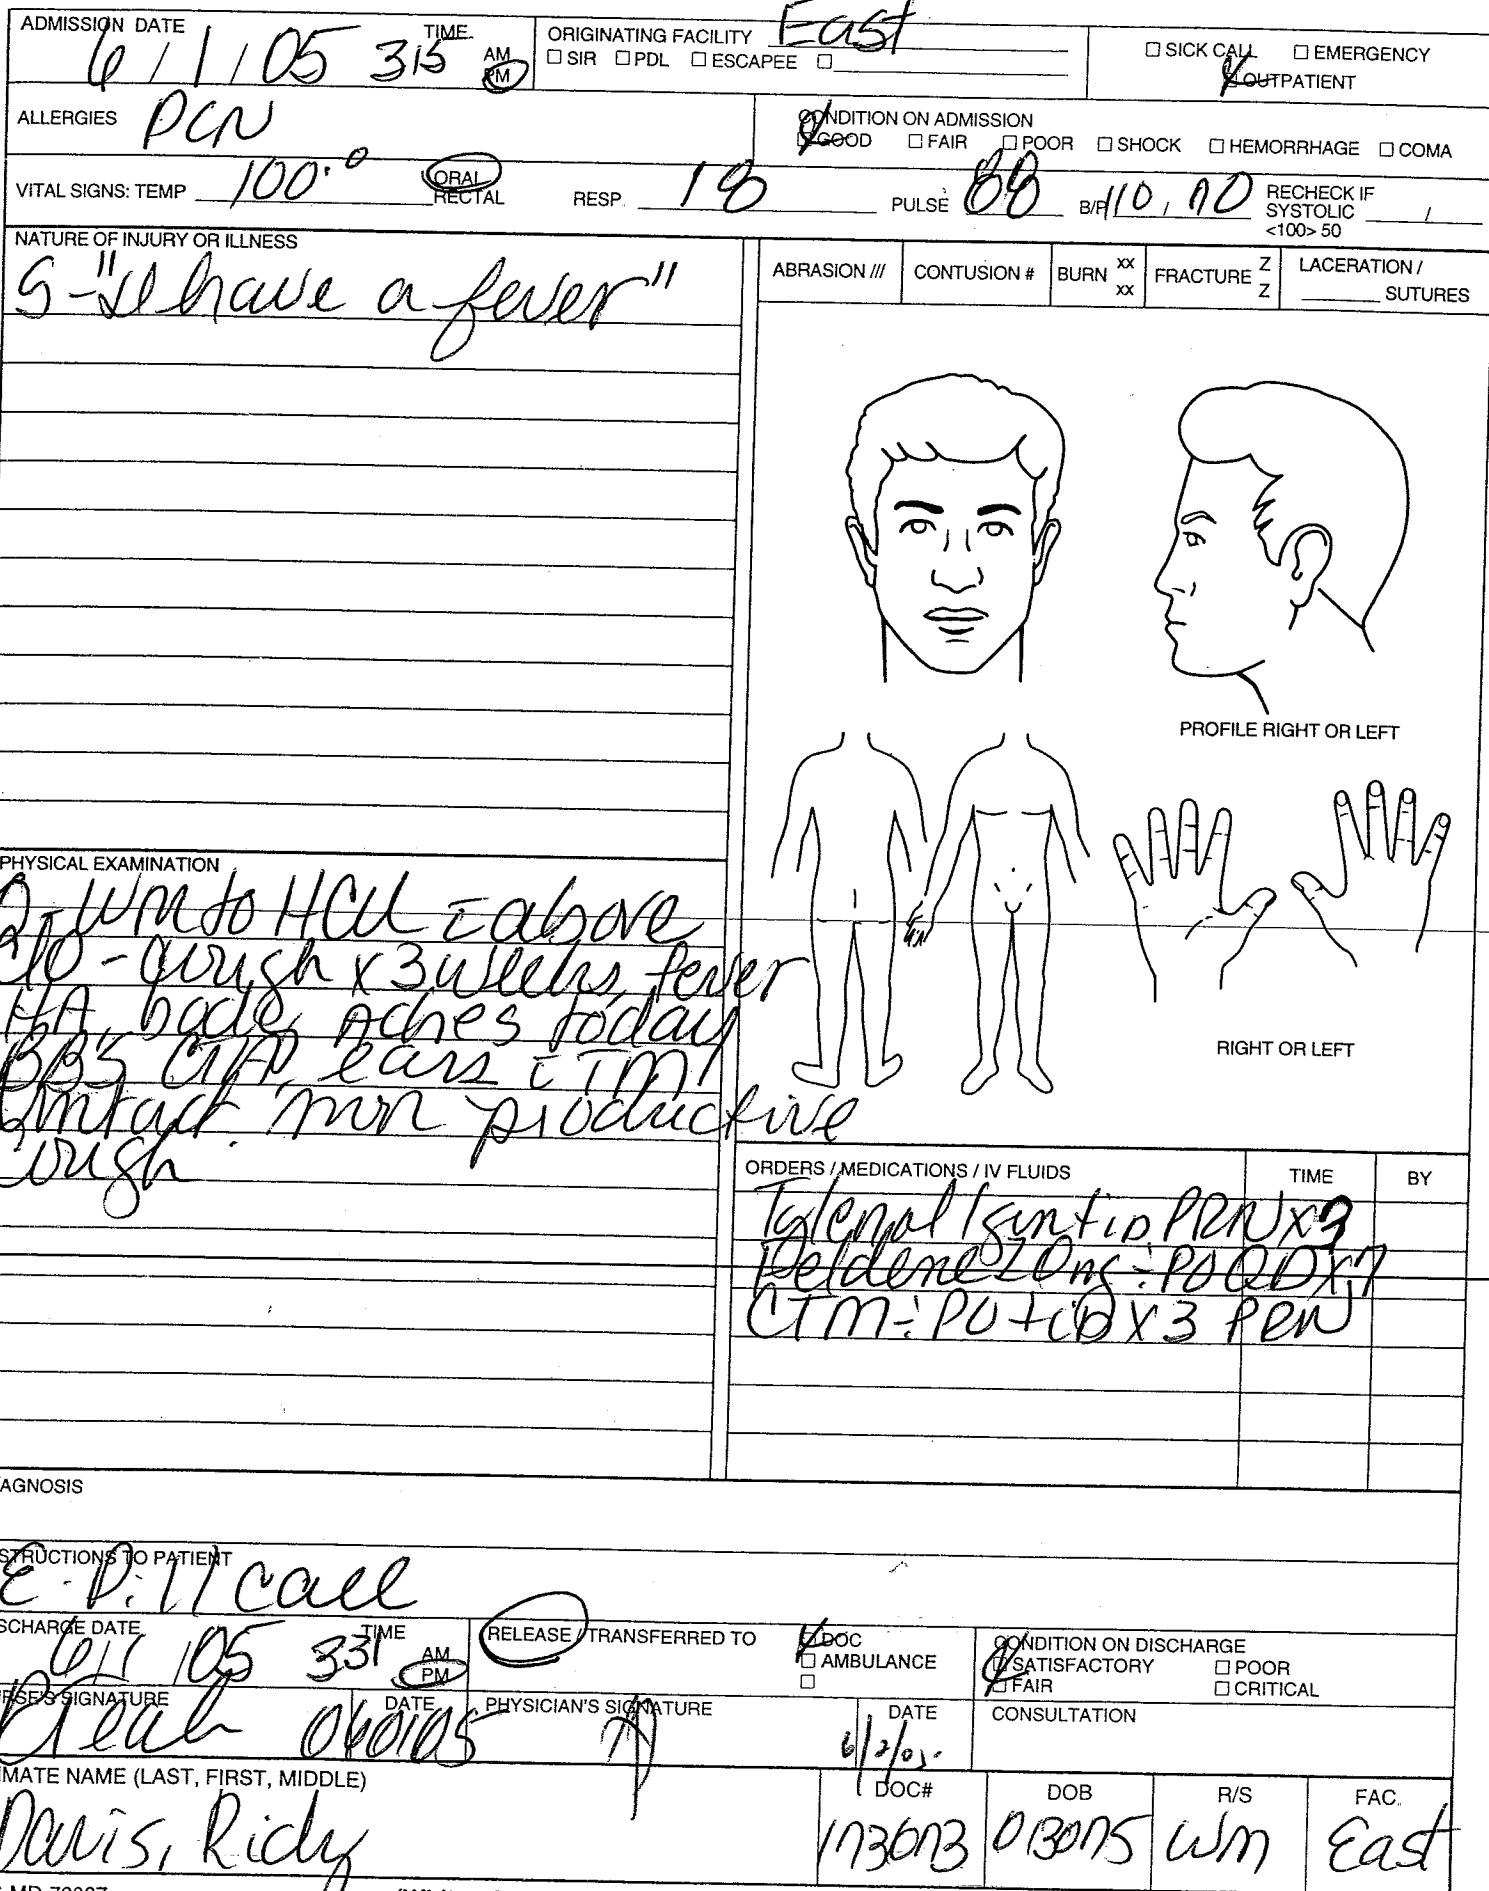 ADMISSION DATE 6/1/05 TIME 315 AM PM
ORIGINATING FACILITY East
☐ SIR ☐ PDL ☐ ESCAPEE ☐
☐ SICK CALL ☐ EMERGENCY
☑ OUTPATIENT
ALLERGIES PCN
CONDITION ON ADMISSION
☑ GOOD ☐ FAIR ☐ POOR ☐ SHOCK ☐ HEMORRHAGE ☐ COMA
VITAL SIGNS: TEMP 100.0 ORAL RECTAL RESP. 18 PULSE 88 B/P 110/70 RECHECK IF SYSTOLIC / <100> 50
NATURE OF INJURY OR ILLNESS
S-"I have a fever"
ABRASION /// CONTUSION # BURN xx xx FRACTURE Z Z LACERATION / SUTURES
PROFILE RIGHT OR LEFT
RIGHT OR LEFT
PHYSICAL EXAMINATION
O-WM to HCU c above
c/o - cough x 3 weeks, fever
HA, body aches today
BBS CTA, ears c TM
intact. non productive
cough
ORDERS / MEDICATIONS / IV FLUIDS TIME BY
Tylenol 1gm tid PRN x3
Feldene 20mg ÷ PO QD x7
CTM ÷ PO tid x 3 PRN
AGNOSIS
STRUCTIONS TO PATIENT
E. Pill call
SCHARGE DATE 6/1/05 TIME 331 AM PM
RELEASE / TRANSFERRED TO ☑ DOC
☐ AMBULANCE
☐
CONDITION ON DISCHARGE
☑ SATISFACTORY ☐ POOR
☐ FAIR ☐ CRITICAL
RSE'S SIGNATURE DATE 060105
PHYSICIAN'S SIGNATURE DATE 6/2/05
CONSULTATION
MATE NAME (LAST, FIRST, MIDDLE)
Davis, Ricky
DOC# 173673
DOB 013075
R/S WM
FAC. East